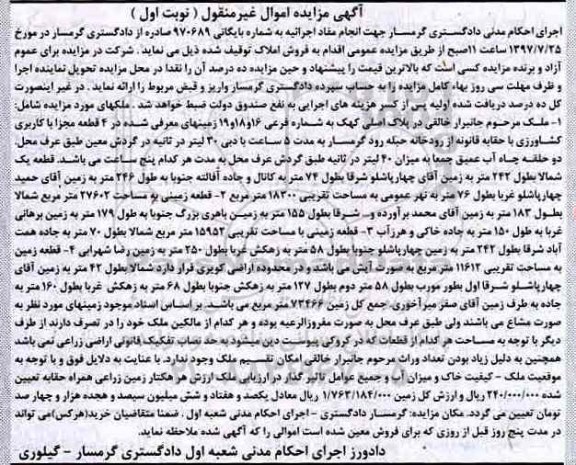 آگهی مزایده اموال غیرمنقول ( نوبت اول )
اجرای احکام مدنی دادگستری گرمسار جهت انجام مفاد اجرائیه به شماره بایگانی ۹۷۰۶۸۹ صادره از دادگستری گرمسار در مورخ
۱۳۹۷/۷/۲۵ ساعت ۱۱صبح از طریق مزایده عمومی اقدام به فروش املاک توقیف شده ذیل می نماید . شرکت در مزایده برای عموم
آزاد و برنده مزایده کسی است که بالاترین قیمت را پیشنهاد و حین مزایده ده درصد آن را نقدا در محل مزایده تحویل نماینده اجرا
و ظرف مهلت سی روز بهاء کامل مزایده را به حساب سپرده دادگستری گرمسار واریز و قبض مربوط را ارائه نماید . در غیر اینصورت
کل ده درصد دریافت شده اولیه پس از کسر هزینه های اجرایی به نفع صندوق دولت ضبط خواهد شد . ملکهای مورد مزایده شامل:
۱- ملک مرحوم جانبرار خالقی در پلاک اصلی کهک به شماره فرعی ۱۶و۱۸و۱۹ زمینهای معرفی شده در ۴ قطعه مجزا با کاربری
کشاورزی با حقابه قانونه از رودخانه حبله رود گرمسار به مدت ۵ ساعت با دبی ۳۰ لیتر در ثانیه در گردش معین طبق عرف محل،
دو حلقه چاه آب عمیق جمعا به میزان ۴۰ لیتر در ثانیه طبق گردش عرف محل به مدت هر کدام پنج ساعت می باشد. قطعه یک
شمالا بطول ۲۴۲ متر به زمین آقای چهارپاشلو شرقا بطول ۷۴ متر به کانال و جاده آفالته جنوبا به طول ۲۴۶ متر به زمین آقای حمید
چهارپاشلو غربا بطول ۷۶ متر به نهر عمومی به مساحت تقریبی ۱۸۳۰۰ متر مربع ۲- قطعه زمینی به مساحت ۲۷۶۰۲ متر مربع شمالا
بطول ۱۸۳ متر به زمین آقای محمد برآورده و... شرقا بطول ۱۵۵ متر به زمین باهری بزرگ جنوبا به طول ۱۷۹ متر به زمین برهانی
غربا به طول ۱۵۰ متر به جاده خاکی و هرزآب ۳- قطعه زمینی با مساحت تقریبی ۱۵۹۵۲ متر مربع شمالا بطول ۷۰ متر به جاده همت
آباد شرقا بطول ۲۴۲ متر به زمین چهارپاشلو جنوبا بطول ۵۸ متر به زهکش غربا بطول ۲۵۰ متر به زمین رضا شهرابی ۴- قطعه زمین
به مساحت تقریبی ۱۱۶۱۲ متر مربع به صورت آیش می باشد و در محدوده اراضی کویری قرار دارد شمالا بطول ۴۲ متر به زمین آقای
چهارپاشلو شرقا اول بطور مورب بطول ۵۸ متر دوم بطول ۱۲۷ متر به زهکش جنوبا بطول ۶۸ متر به زهکش غربا بطول ۱۶۰ متر به
جاده به طرف زمین آقای صفر میرآخوری. جمع کل زمین ۷۳۴۶۶ متر مربع می باشد. بر اساس اسناد موجود زمینهای مورد نظر به
صورت مشاع می باشند ولی طبق عرف محل به صورت مفروزالرعیه بوده و هر کدام از مالکین ملک خود را در تصرف دارند از طرف
دیگر با توجه به مساحت هر کدام از قطعات که در کروکی پیوست دین میشود به حد نصاب تفکیک قانونی اراضی زراعی نمی باشد
همچنین به دلیل زیاد بودن تعداد وراث مرحوم جانبرار خالقی امکان تقسیم ملک وجود ندارد. با عنایت به دلایل فوق و با توجه به
موقعیت ملک - کیفیت خاک و میزان آب و جمیع عوامل تاثیر گذار در ارزیابی ملک ارزش هر هکتار زمین زراعی همراه حقابه تعیین
۲۴۰/۰۰۰/۰۰۰ ریال و ارزش کل زمین ۱/۷۶۳/۱۸۴/۰۰۰ ریال معادل یکصد و هفتاد و شش میلیون سیصد و هجده هزار و چهار صد
تومان تعیین می گردد. مکان مزایده: گرمسار دادگستری - اجرای احکام مدنی شعبه اول . ضمنا متقاضیان خرید(هرکس)می تواند
در مدت پنج روز قبل از روزی که برای فروش معین شده است اموالی را که آگهی شده ملاحظه نماید.
دادورز اجرای احکام مدنی شعبه اول دادگستری گرمسار - گیلوری